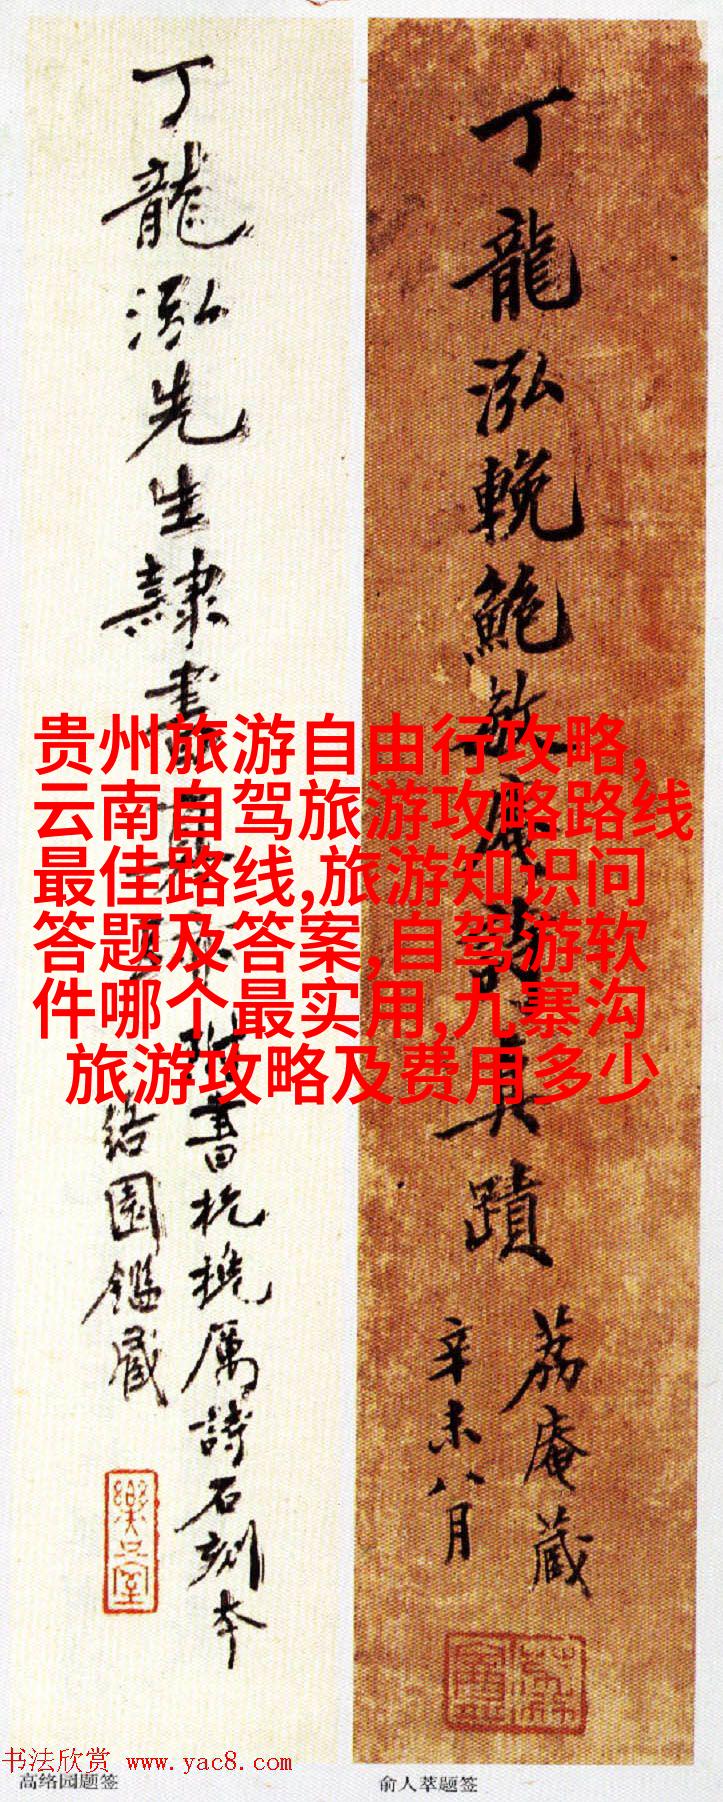 贵州旅游自由行攻略,
云南自驾旅游攻略路线
最佳路线,旅游知识问
答题及答案,自驾游软
件哪个最实用,九寨沟
旅游攻略及费用多少
丁龍泓輓鮑敬庵詩真蹟
荔庵蔵
辛未八月
丁龍泓先生隷書
附書杭
厲詩石刻本
絡園鑑蔵
樂只室
书法欣赏 www.yac8.com
高络园题签
俞人萃题签